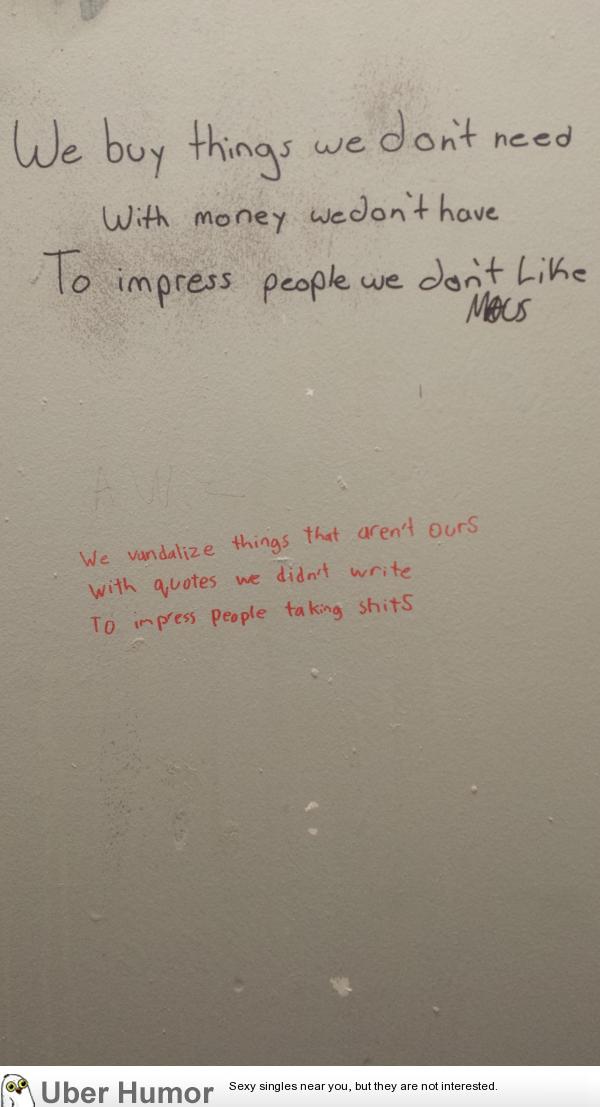 We buy things we don't need
With money we don't have
To impress people we don't Like
We vandalize things that aren't ours
with quotes we didn't write
To impress people taking shits
Uber Humor
Sexy singles near you, but they are not interested.